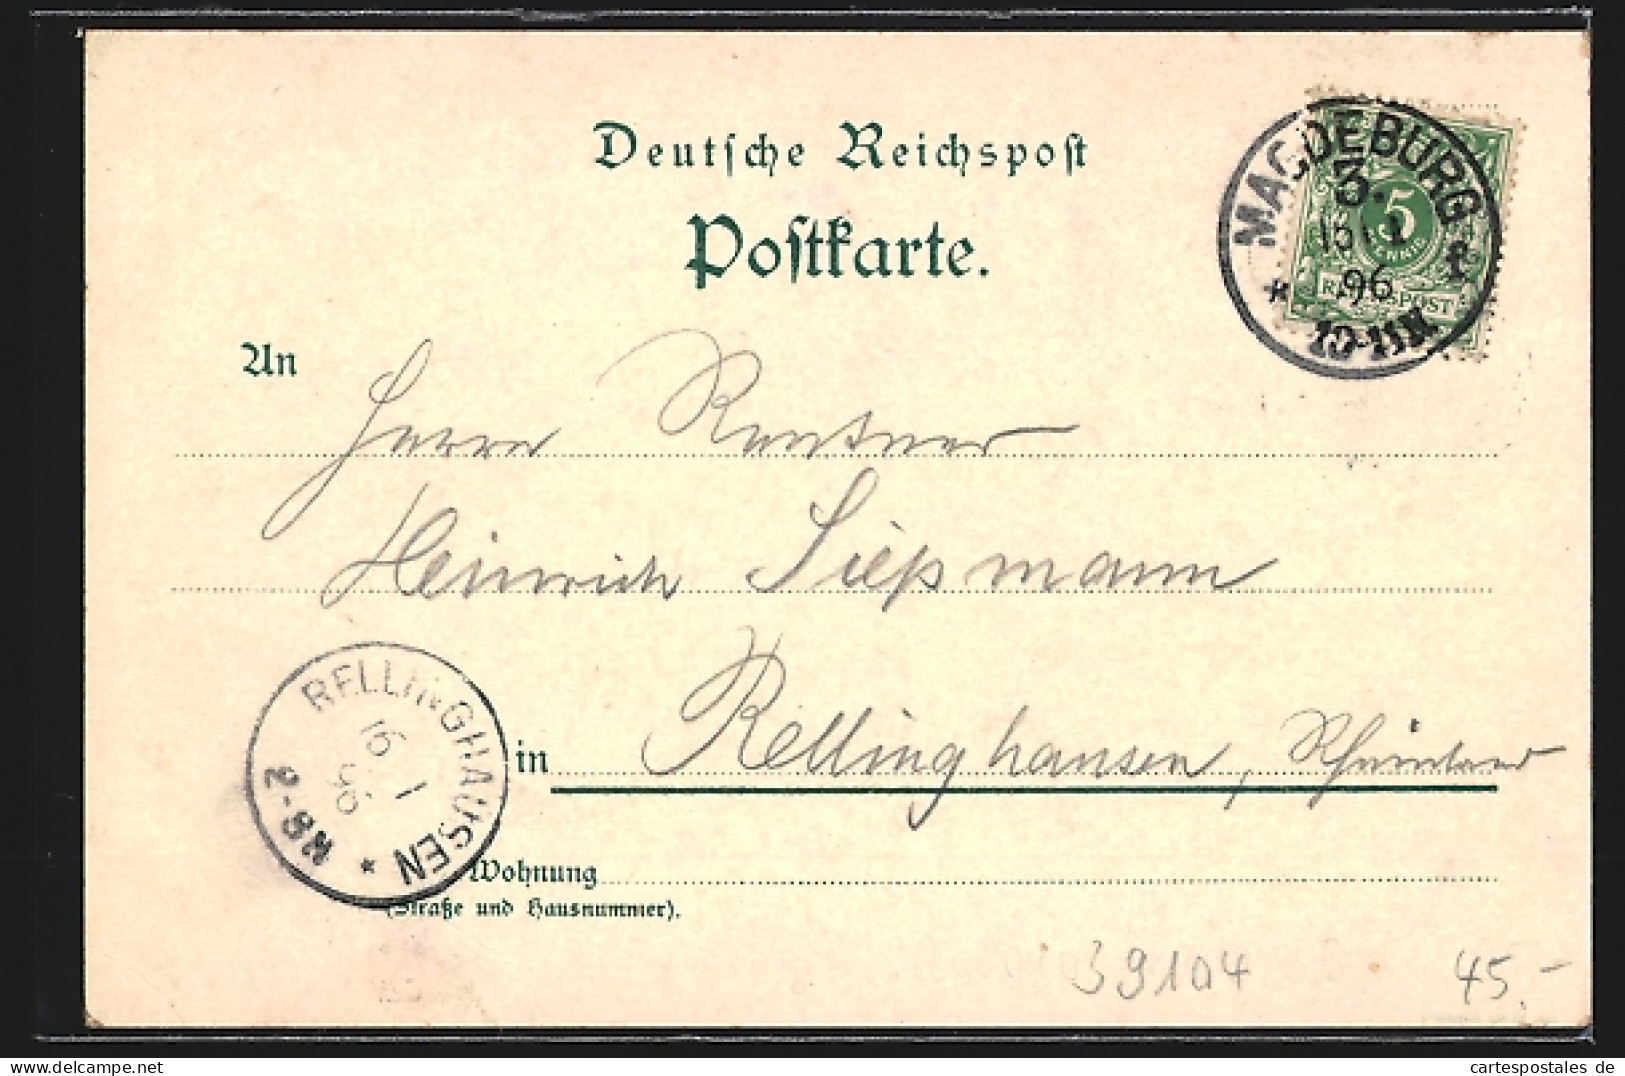 Deutsche Reichspost
Postkarte.
MAGDEBURG
3.
15 1
96
* 1
10-11N
5
PFENNIG
REICHSPOST
An
Herrn Rentner
Heinrich Siepmann
in Rellinghausen, Rheinland
RELLINGHAUSEN
16 1
96
2-3N
*
Wohnung
(Straße und Hausnummer).
39104
45.-
www.cartespostales.de